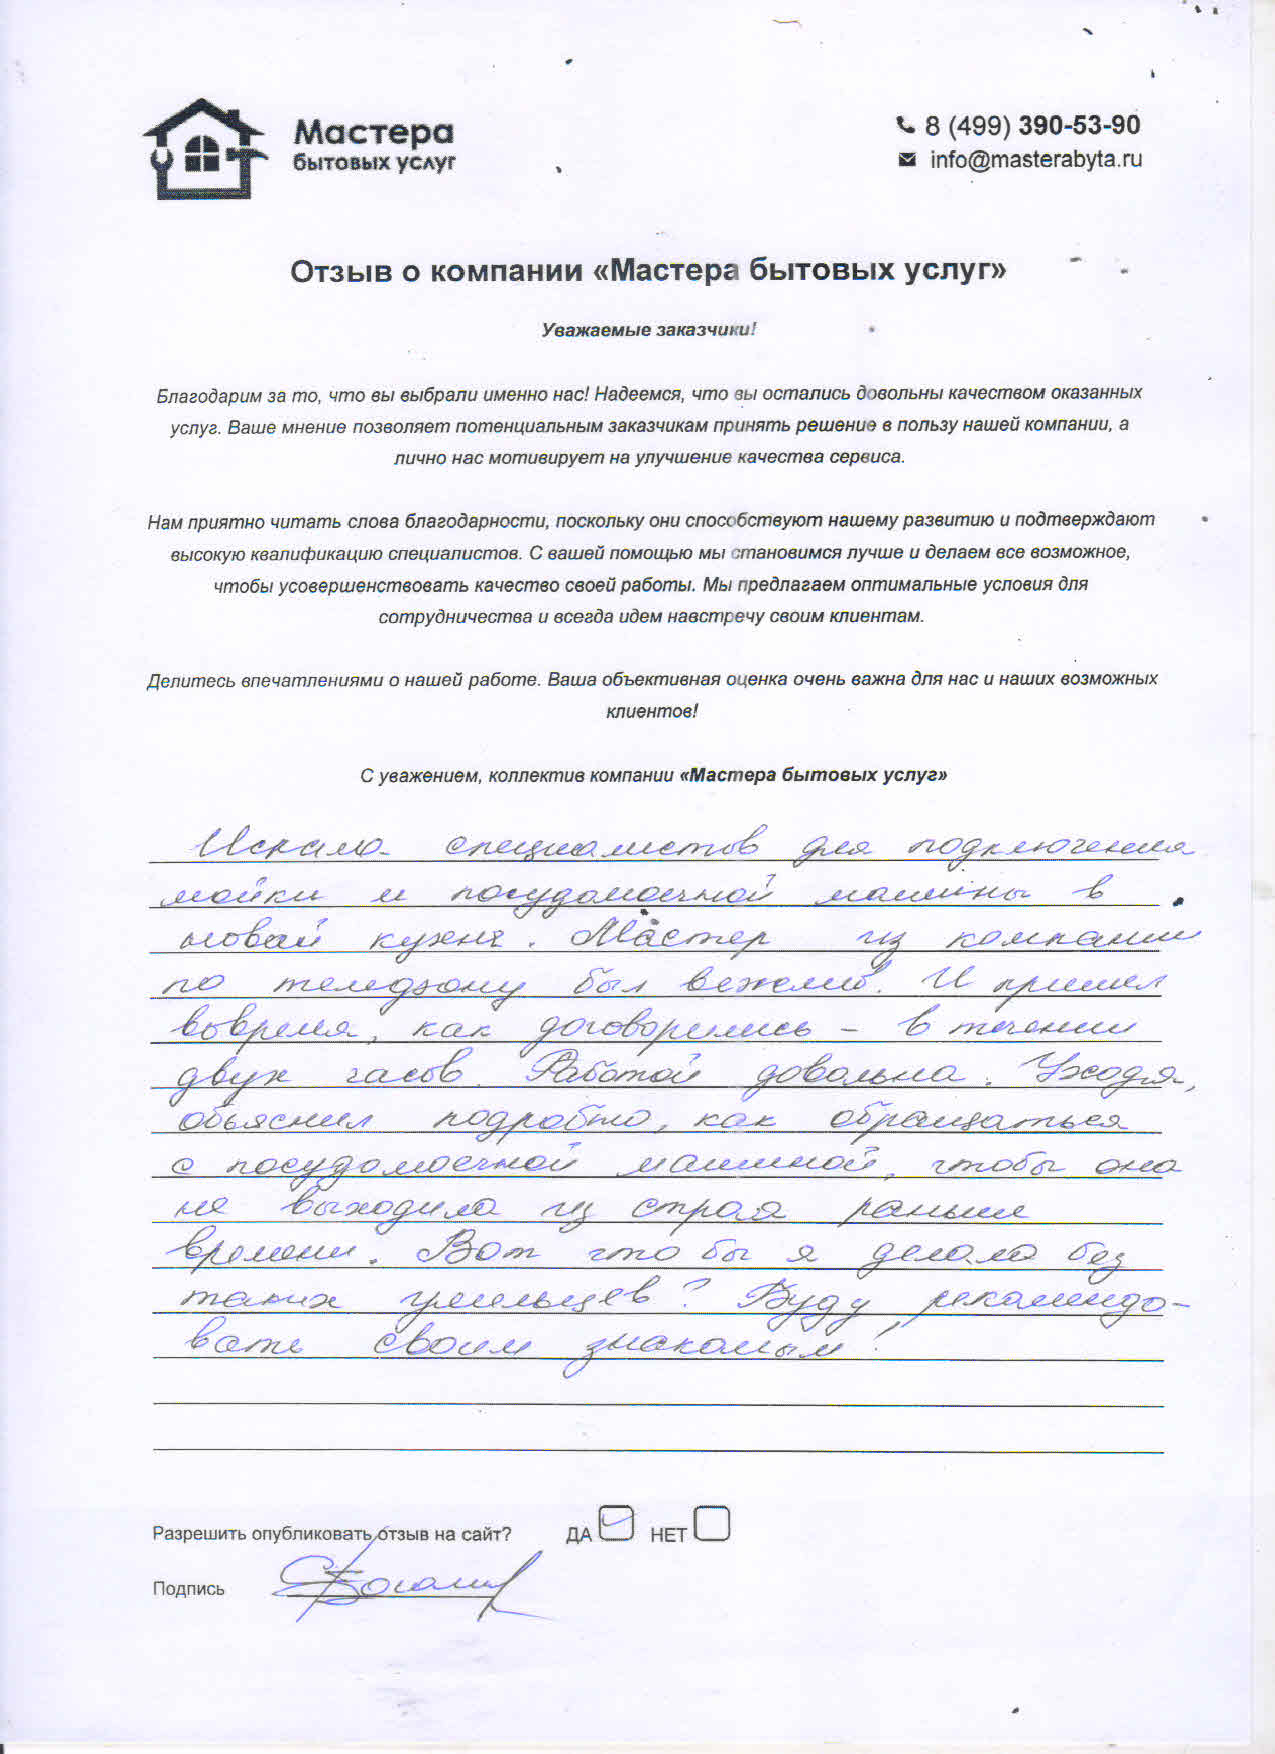 Мастера
бытовых услуг
8 (499) 390-53-90
info@masterabyta.ru
Отзыв о компании «Мастера бытовых услуг»
Уважаемые заказчики!
Благодарим за то, что вы выбрали именно нас! Надеемся, что вы остались довольны качеством оказанных
услуг. Ваше мнение позволяет потенциальным заказчикам принять решение в пользу нашей компании, а
лично нас мотивирует на улучшение качества сервиса.
Нам приятно читать слова благодарности, поскольку они способствуют нашему развитию и подтверждают
высокую квалификацию специалистов. С вашей помощью мы становимся лучше и делаем все возможное,
чтобы усовершенствовать качество своей работы. Мы предлагаем оптимальные условия для
сотрудничества и всегда идем навстречу своим клиентам.
Делитесь впечатлениями о нашей работе. Ваша объективная оценка очень важна для нас и наших возможных
клиентов!
С уважением, коллектив компании «Мастера бытовых услуг»
Искала специалистов для подключения
мойки и посудомоечной машины в
новой кухне. Мастер из компании
по телефону был вежлив. И пришел
вовремя, как договорились - в течении
двух часов. Работой довольна. Уходя,
объяснил подробно, как обращаться
с посудомоечной машиной, чтобы она
не выходила из строя раньше
времени. Вот что бы я делала без
таких умельцев? Буду рекомендо-
вать своим знакомым!
Разрешить опубликовать отзыв на сайт? ДА НЕТ
Подпись